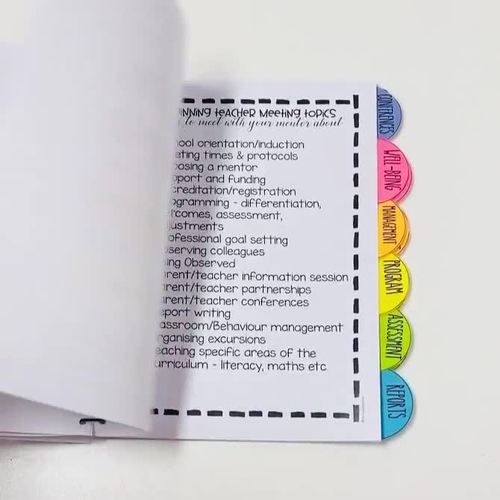 NNING TEACHER MEETING TOPICS
to meet with your mentor about
ool orientation/induction
eting times & protocols
osing a mentor
port and funding
creditation/registration
ogramming - differentiation,
comes, assessment,
justments
ofessional goal setting
serving colleagues
ing Observed
rent/teacher information session
rent/teacher partnerships
rent/teacher conferences
port writing
assroom/Behaviour management
rganising excursions
eaching specific areas of the
urriculum - literacy, maths etc.
CONFERENCES
WELL-BEING
MANAGEMENT
PROGRAM
ASSESSMENT
REPORTS